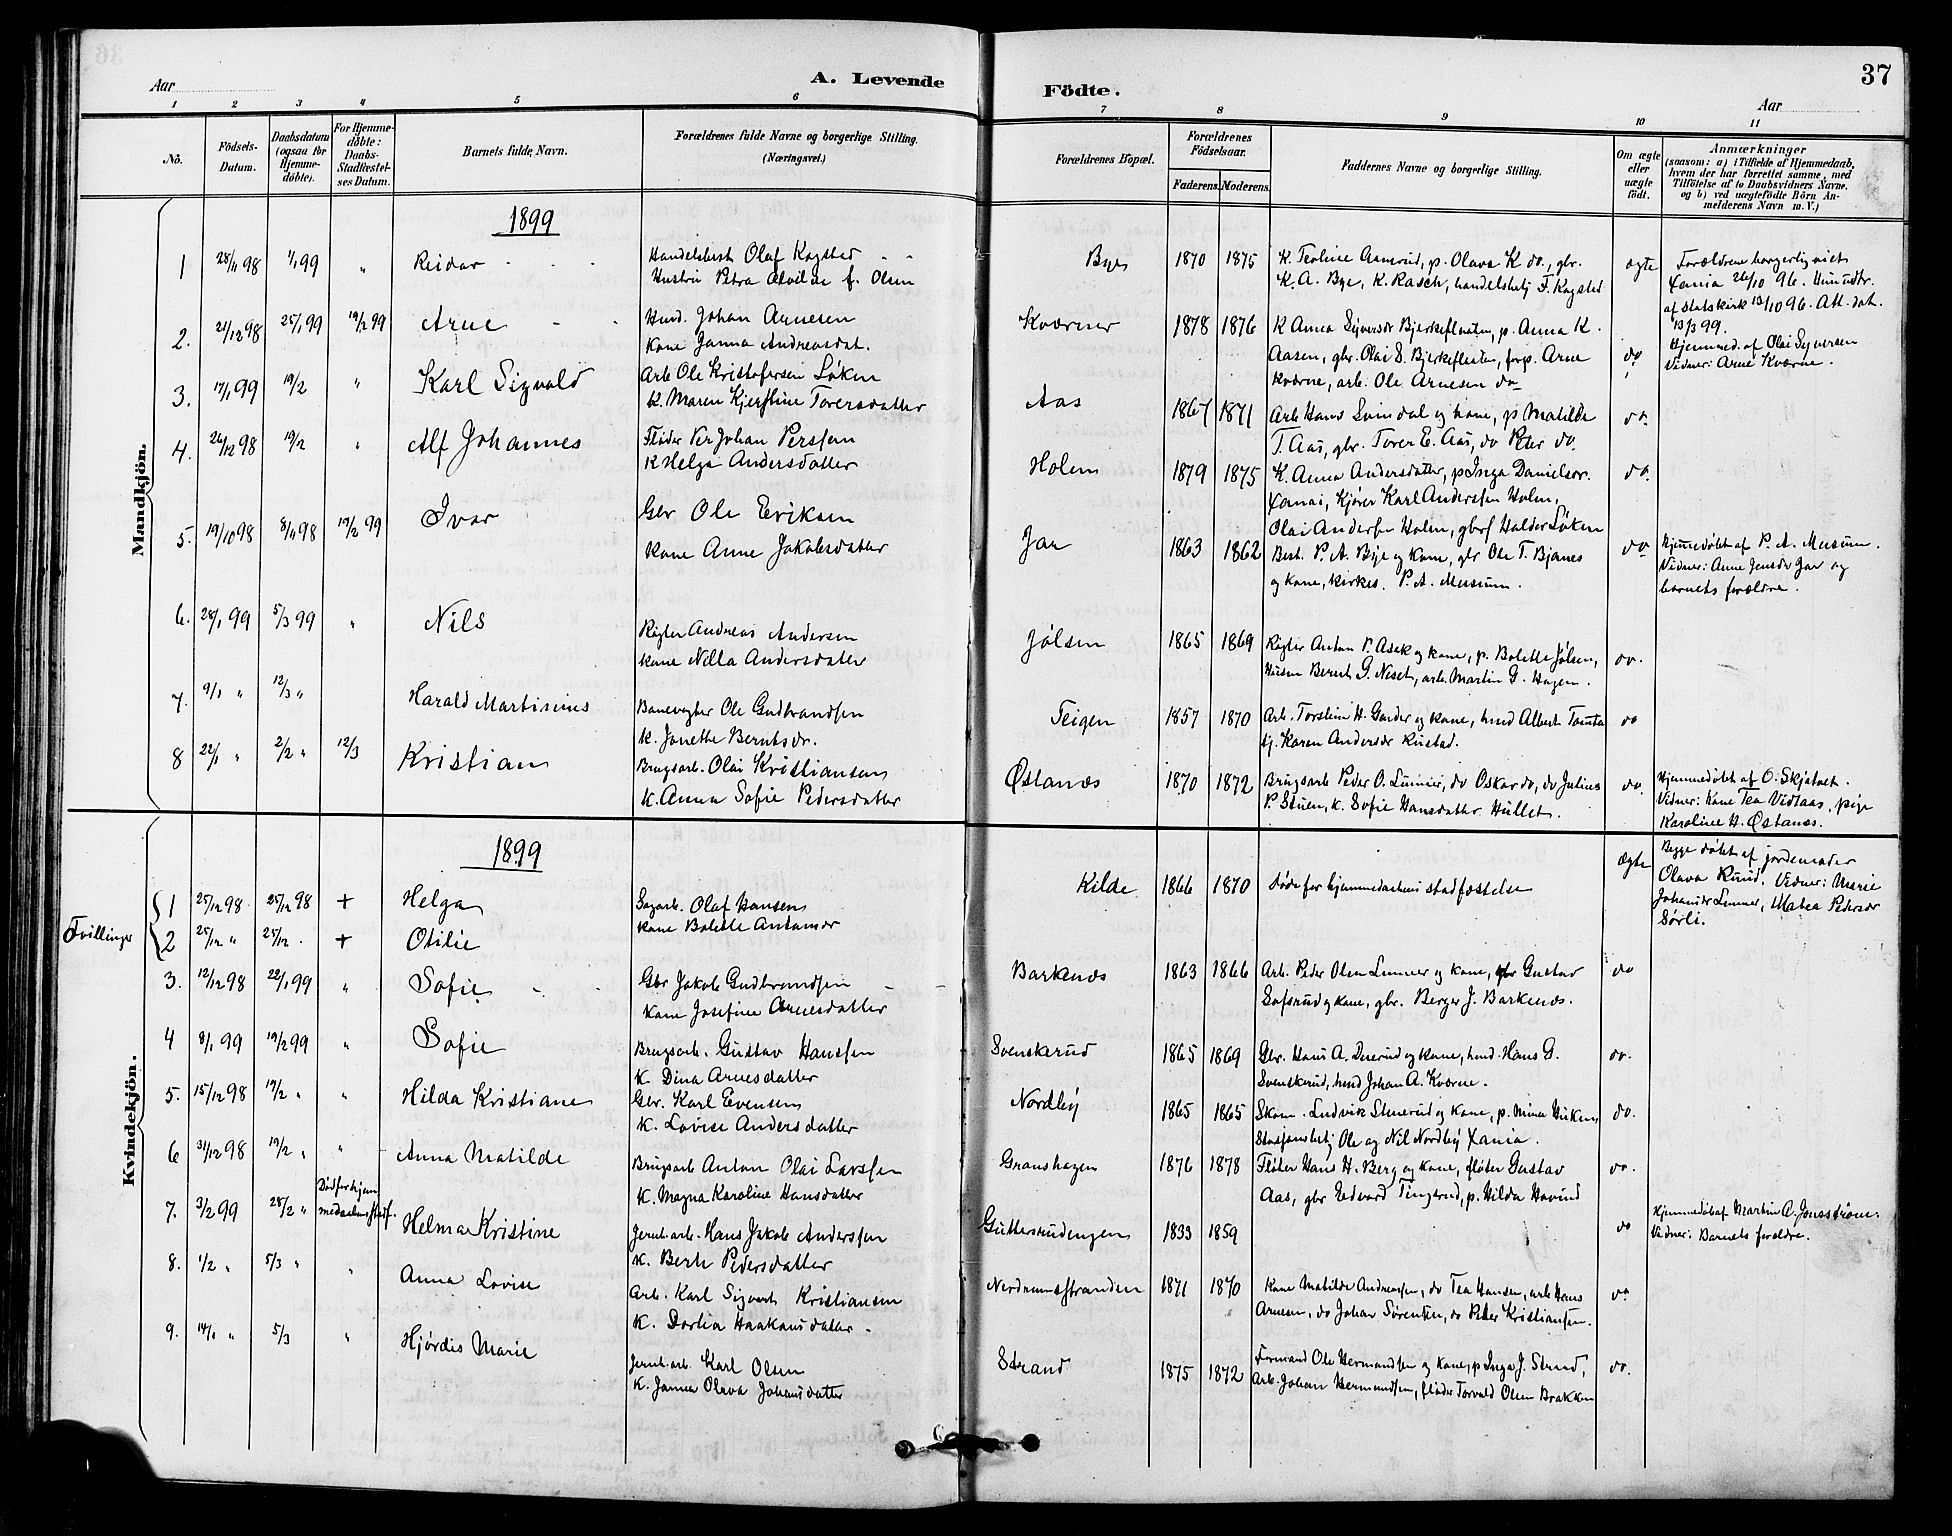 A. Levende
Födte.
37
Aar
Aar
1 2 3 4 5 6 7 8 9 10 11
No.
Födsels-
Datum.
Daabsdatum
(ogsaa för
Hjemme-
döbte).
For Hjemme-
döbte:
Daabs-
Stadfæstel-
ses Datum.
Barnets fulde Navn.
Forældrenes fulde Navne og borgerlige Stilling.
(Næringsvei.)
Forældrenes Bopæl.
Forældrenes
Födselsaar.
Faderens. Moderens.
Faddernes Navne og borgerlige Stilling.
Om ægte
eller
uægte
födt.
Anmærkninger
(saasom: a) i Tilfælde af Hjemmedaab,
hvem der har forrettet samme, med
Tilföielse af to Daabsvidners Navne.
og b) ved uægtefödte Börn An-
melderens Navn m. V.)
Mandkjön.
1899
1 28/11 98 1/1 99 " Reidar
Handelsbest Olaf Kogstad
Hustru Petra f. Olsen
Bye 1870 1875
K. A. Bye, K. Rasch, handelsbetj F. Kogstad
ægte
Forældrene borgerlig viet
Xania 26/10 96. Hun udtr.
af Statskirk 13/10 96. Att. dat.
13/3 99.
2. 21/12 98 25/1 99 19/2 99 Arne
Husd. Johan Arnesen
Kone Janna Andreasdat.
Kværner 1878 1876
K Anna Syversdr Bjerkefloaten, p. Anna K.
Aasen, gbr. Olai S. Bjerkefloaten, forp. Arne
Kværne, arb. Ole Arnesen do
do
Hjemmed. af Olai Syversen
Vidner: Arne Kværne.
3. 17/1 99 19/2 " Karl Sigvald
Arb Ole Kristofersen Løken
K. Maren Kjerstine Torersdatter
Aas 1867 1871
Arb Hans Svindal og kone, p Matilde
T. Aas, gbr. Torer E. Aas, do Peter do.
do.
4. 26/12 98 19/2 " Alf Johannes
Johan Perssen
K Helga Andersdatter
Holen 1879 1875
K. Anna Andersdatter, p Inga Danielsdr.
Kjører Karl Anderssen Holen,
Olai Andersen Holen, Halder Løken
do.
5. 19/10 98 8/11 98 19/2 99 Ivar
Gbr Ole Eriksen
Kone Anne Jakobsdatter
Jar 1863 1862
Best. P. A. Bye og kone, gbr Ole T. Bjanes
og kone, kirkes. P. A. Musum.
do
Hjemmedøbt af P. A. Musum.
Vidner: Anne Jensdr Jar og
barnets forældre.
6. 28/1 99 5/3 99 " Nils
Røgter Andreas Andersen
Kone Nilla Andersdatter
Jølsen 1865 1869
Røgter Anton P. Asak og kone, p. Bolette Jølsen,
Husm Bernt G. Neset, arb. Martin G. Hagen.
do.
7. 9/1 " 12/3 " Harald Martinius
Banevogter Ole Gudbrandsen
K. Janette Berntsdr.
Teigen 1857 1870
Arb. Torstein H. Garder og kone, husd Albert Tomta
tj. Karen Andersdr Rustad.
do
8 22/1 " 2/2 " 12/3 Kristian
Brugsarb. Olai Kristiansen
K. Anna Sofie Pedersdatter
Østanæs 1870 1872
Brugsarb Peder O. Lunner, do Oskar do, do Julius
P. Stuen, K. Sofie Hansdatter Hullet.
do.
Hjemmedøbt af O. Skjatvet.
Vidner: Kone Tea Vidtaas, pige
Karoline H. Østanæs.
Kvindekjön.
1899
Tvillinger
1 25/12 98 25/12 98 + Helga
Sagarb. Olaf Hansen
Kone Bolette Antonsdr
Kilde 1866 1870
Døde før hjemmedaabens stadfæstelse
ægte
Begge døbt af jordemoder
Olava Ruud. Vidner: Marie
Johansdr Lunner, Matea Pedersdr
Sørli.
2 25/12 " 25/12 . + Otilie
3. 12/12 98 22/1 99 " Sofie
Gbr Jakob Gudbrandsen
Kone Josefine Arnesdatter
Barknæs 1863 1866
Arb. Peder Olsen Lunner og kone, gbr Gustav
Sofsrud og kone, gbr. Berger J. Barknæs.
do
4 8/1 99 19/2 99 " Sofie
Brugsarb. Gustav Hanssen
K. Dina Arnesdatter
Svenskerud 1865 1869
Gbr. Hans A. Duerud og kone, husd. Hans G.
Svenskerud, husd Johan A. Kværne.
do.
5. 15/12 98 19/2 " " Hilda Kristiane
Gbr. Karl Evensen
K. Lovise Andersdatter
Nordby 1865 1865
Skom. Ludvik Stenerud og kone, p. Mina
Stasjonsbetj Ole og Nil Nordby Xania.
do.
6 31/12 98 19/2 " " Anna Matilde
Brugsarb Anton Olai Larssen
K. Magna Karoline Hansdatter
Granshagen 1876 1878
Fløter Hans H. Berg og kone, fløter Gustav
Aas, gbr Edvard Tingerud, p. Hilda Hovind
do.
7. 3/2 99 28/2 " Død før hjem
medaabens stadf. Helma Kristine
Jernb. arb. Hans Jakob Anderssen
K. Berte Pedersdatter
Guttersrudengen 1833 1859
do
Hjemmedøb af Martin A. Jonsstrøm.
Vidner: Barnets forældre.
8. 1/2 " 5/3 " " Anna Lovise
Arb. Karl Sigvart Kristiansen
K. Dorlia Haakonsdatter
Nerdrumsstranden 1871 1870
Kone Matilde Andreassen, do Tea Hansen, arb Hans
Arnesen, do Johan Sørensen, do Peter Kristiansen.
do
9. 14/1 " 5/3 " Hjørdis Marie
Jernb. arb. Karl Olsen
K. Janna Olava Johansdatter
Strand 1875 1872
Formand Ole Hermandsen og kone, p Inga J. Strand,
Arb. Johan Hermandsen, fløder Torvald Olsen Brakken
do.